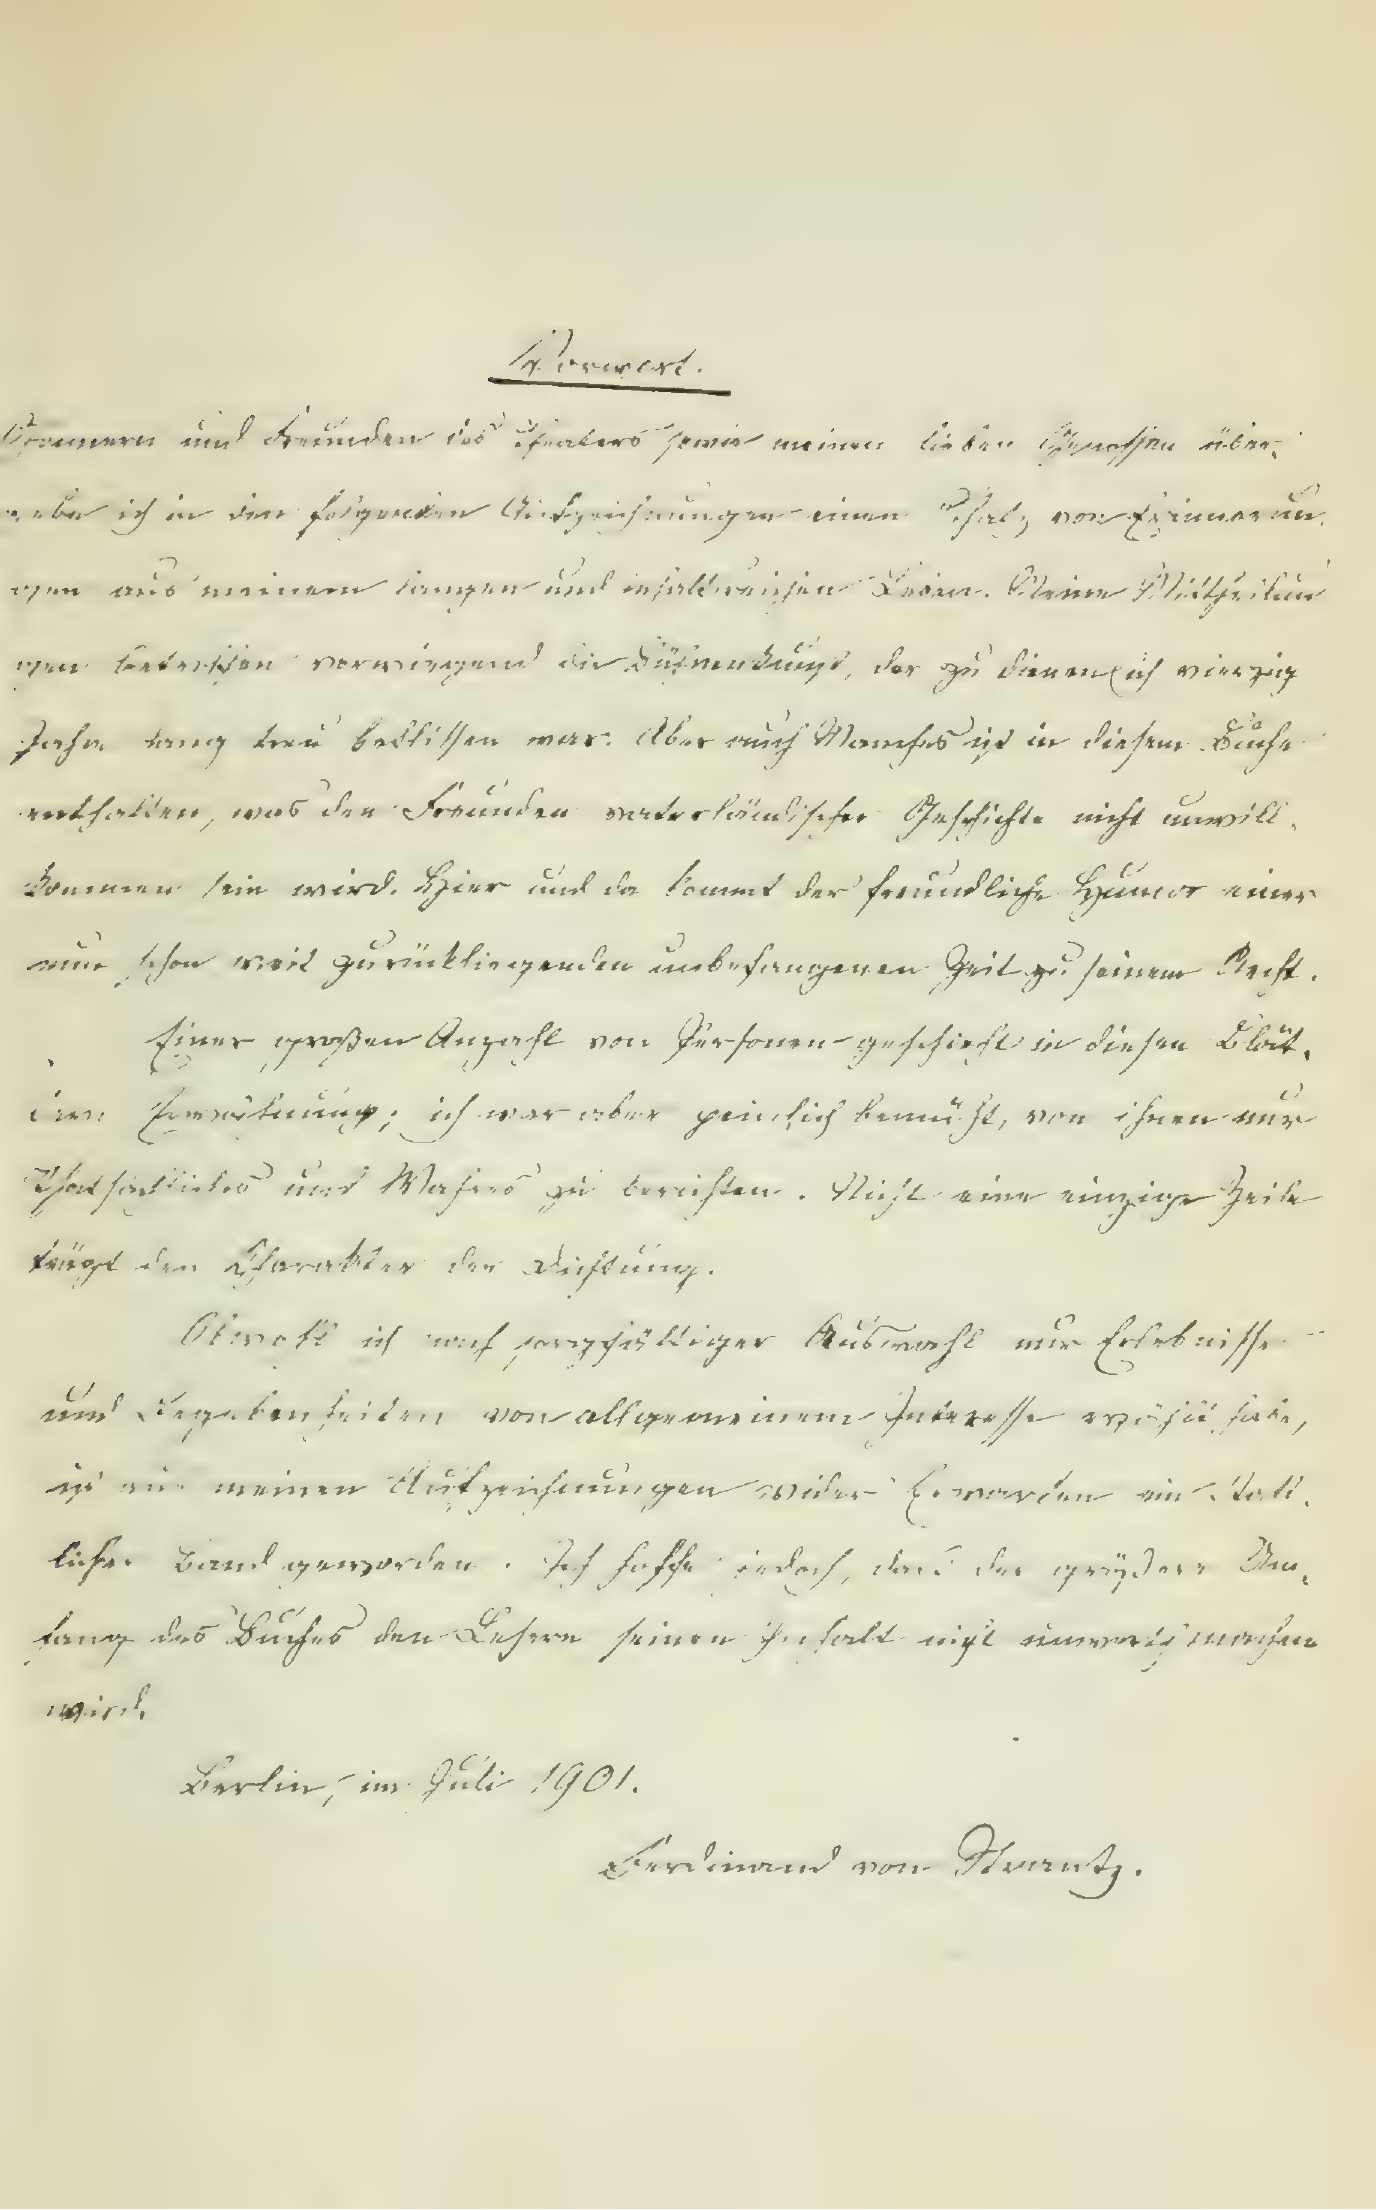 Vorwort.
Gönnern und Freunden des Theaters sowie meinen lieben Genossen über-
gebe ich in den folgenden Aufzeichnungen einen Schatz von Erinnerun
gen aus meinem langen und inhaltreichen Leben. Meine Mittheilun
gen betreffen vorwiegend die Bühnenkunst, der zu dienen ich vierzig
Jahre lang treu beflissen war. Aber auch Manches ist in diesem Buche
enthalten, was den Freunden vaterländischer Geschichte nicht unwill-
kommen sein wird. Hier und da kommt der freundliche Humor einer
nun schon weit zurückliegenden unbefangenen Zeit zu seinem Recht.
Einer großen Anzahl von Personen geschieht in diesen Blät-
tern Erwähnung; ich war aber peinlich bemüht, von ihnen nur
Thatsächliches und Wahres zu berichten. Nicht eine einzige Zeile
trägt den Charakter der Dichtung.
Obwohl ich nach sorgfältiger Auswahl nur Erlebnisse
und Begebenheiten von allgemeinem Interesse erzählt habe,
ist aus meinen Aufzeichnungen wider Erwarten ein statt-
licher Band geworden. Ich hoffe jedoch, dass der größere Um-
fang des Buches den Lesern seinen Inhalt nicht unwerth machen
wird.
Berlin, im Juli 1901.
Ferdinand von Strantz.